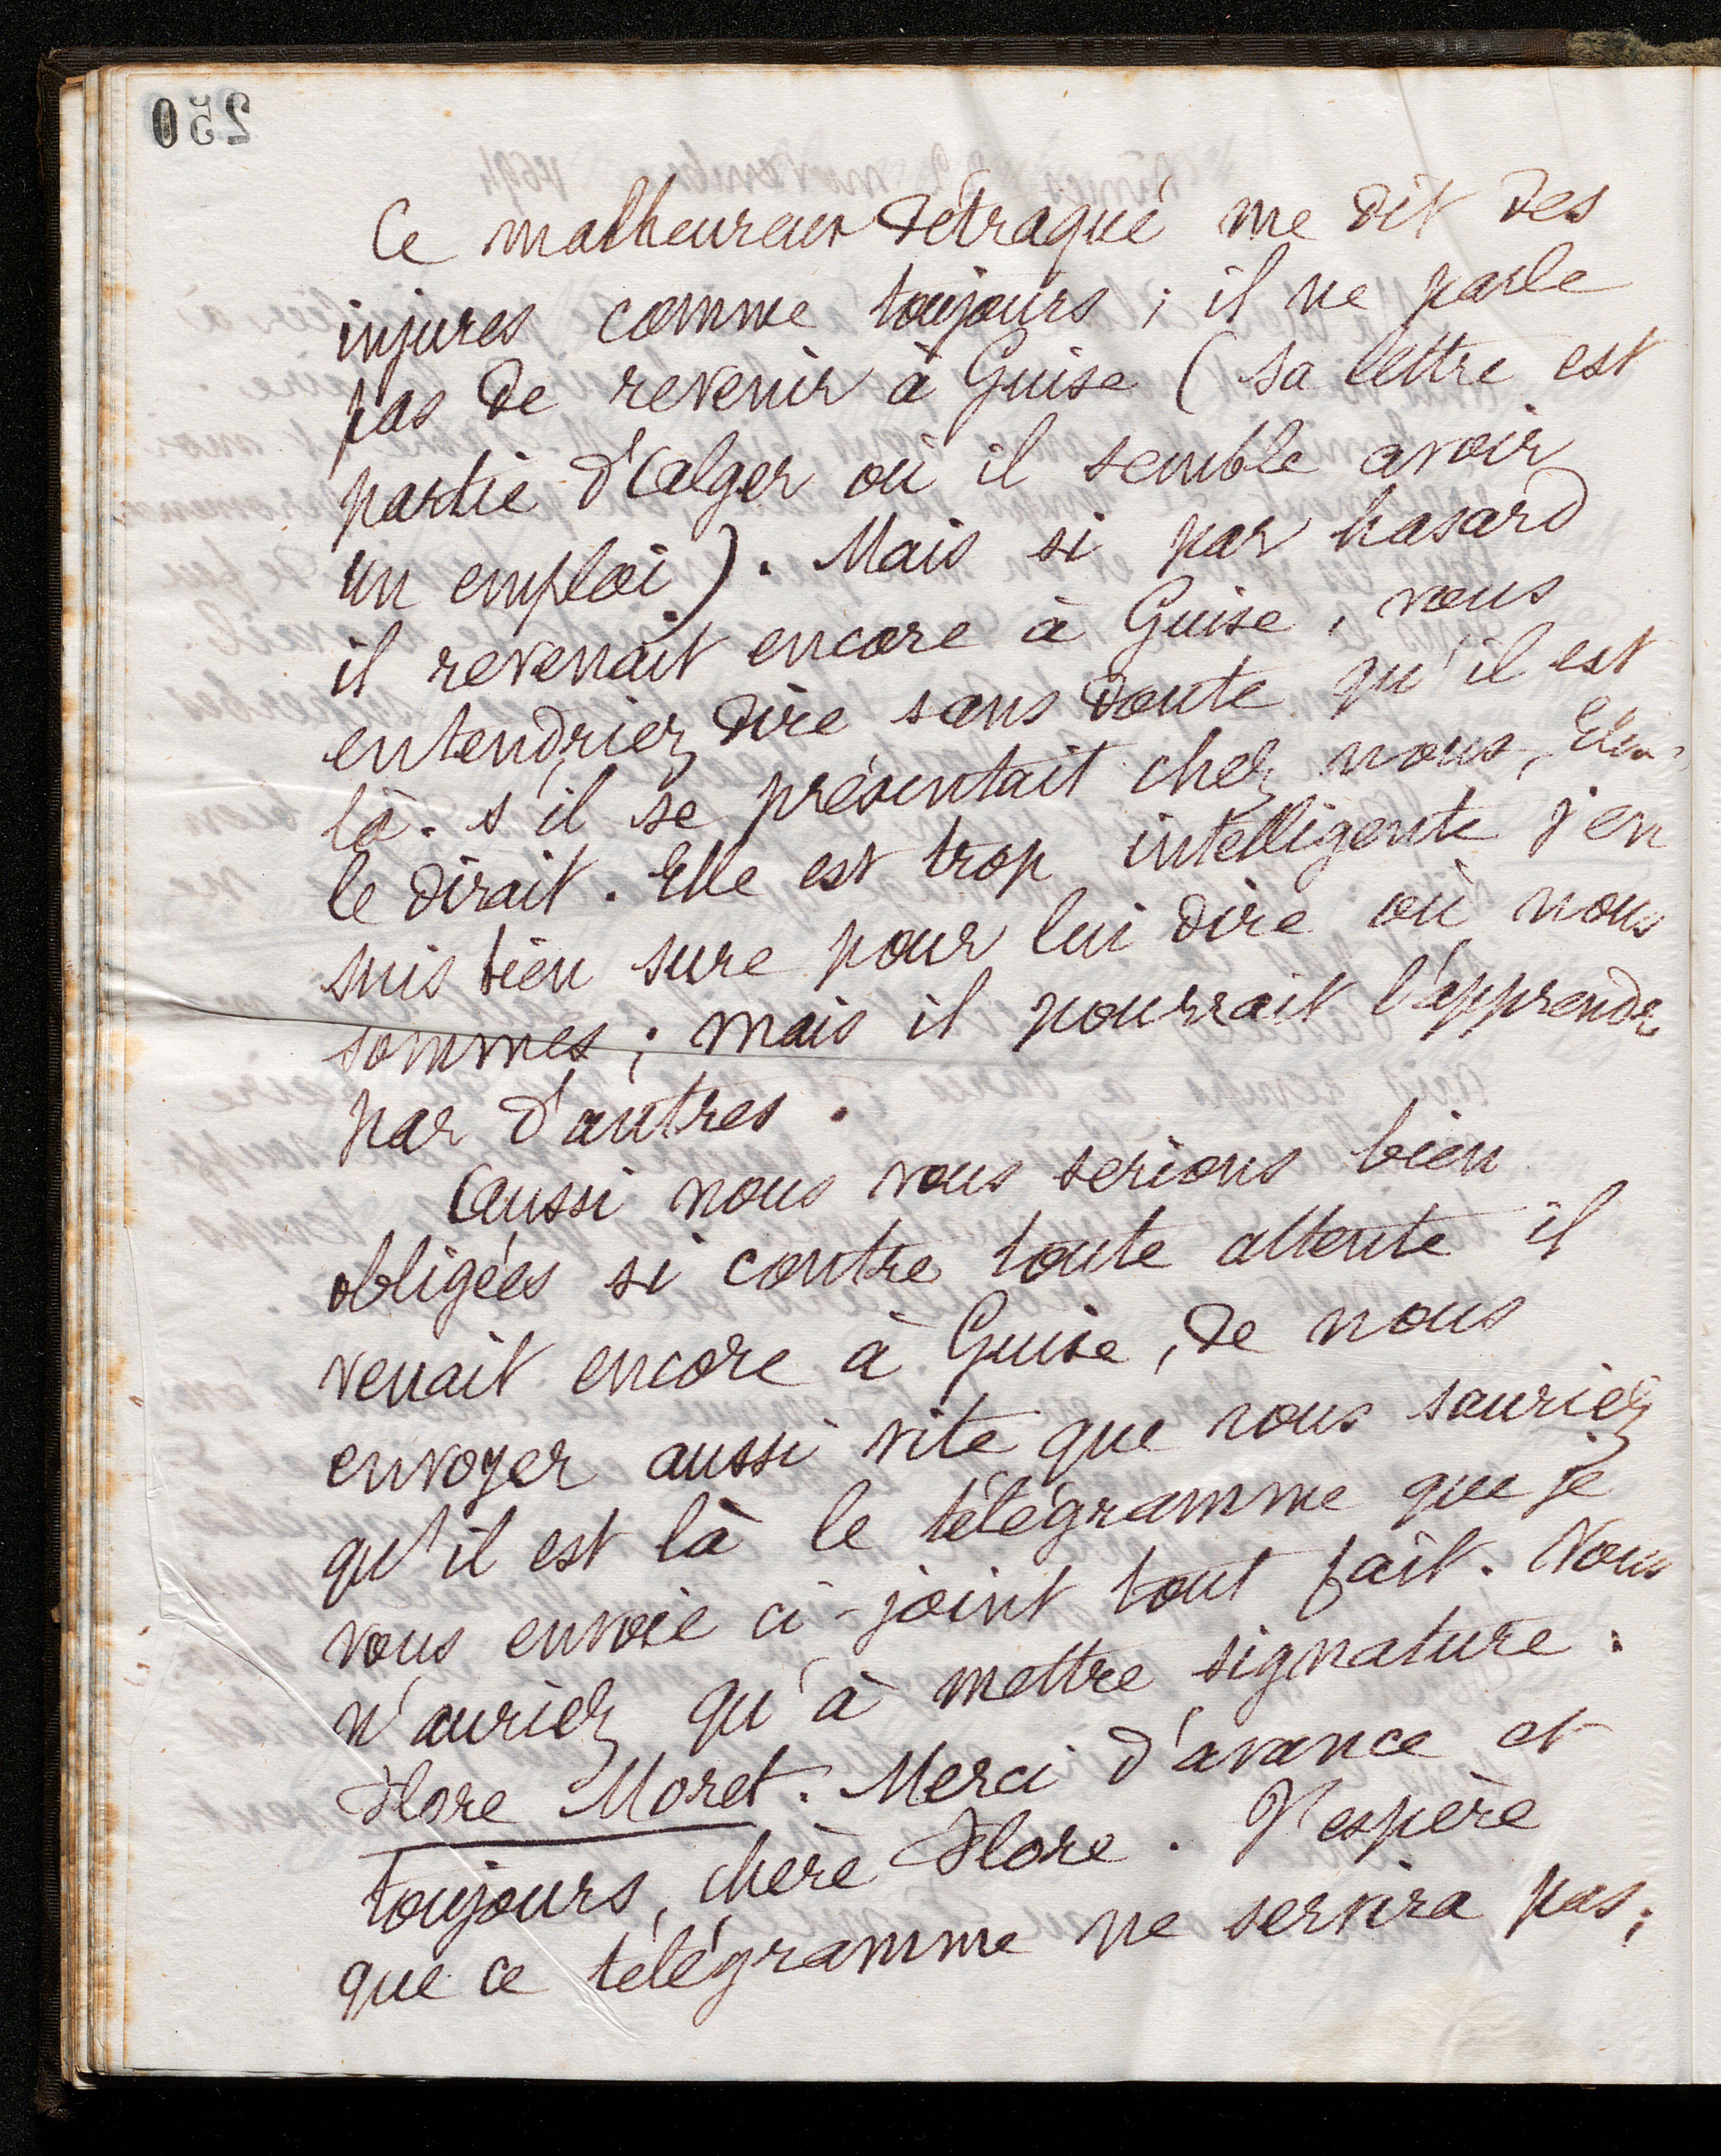 250
Ce malheureux détraqué me dit des
injures comme toujours ; il ne parle
pas de revenir à Guise (sa lettre est
partie d'Alger où il semble avoir
un emploi). Mais si par hasard
il revenait encore à Guise, vous
entendriez dire sans doute qu'il est
là. s'il se présentait chez nous,
le dirait. Elle est trop intelligente j'en
suis bien sure pour lui dire où nous
sommes ; mais il pourrait l'apprendre
par d'autres.
Aussi nous vous serions bien
obligées si contre toute attente il
venait encore à Guise, de nous
envoyer aussi vite que vous sauriez
qu'il est là le télégramme que je
vous envoie ci-joint tout fait. Vous
n'auriez qu'à mettre signature :
Flore Moret. Merci d'avance et
toujours, chère Flore. J'espère
que ce télégramme ne servira pas ;